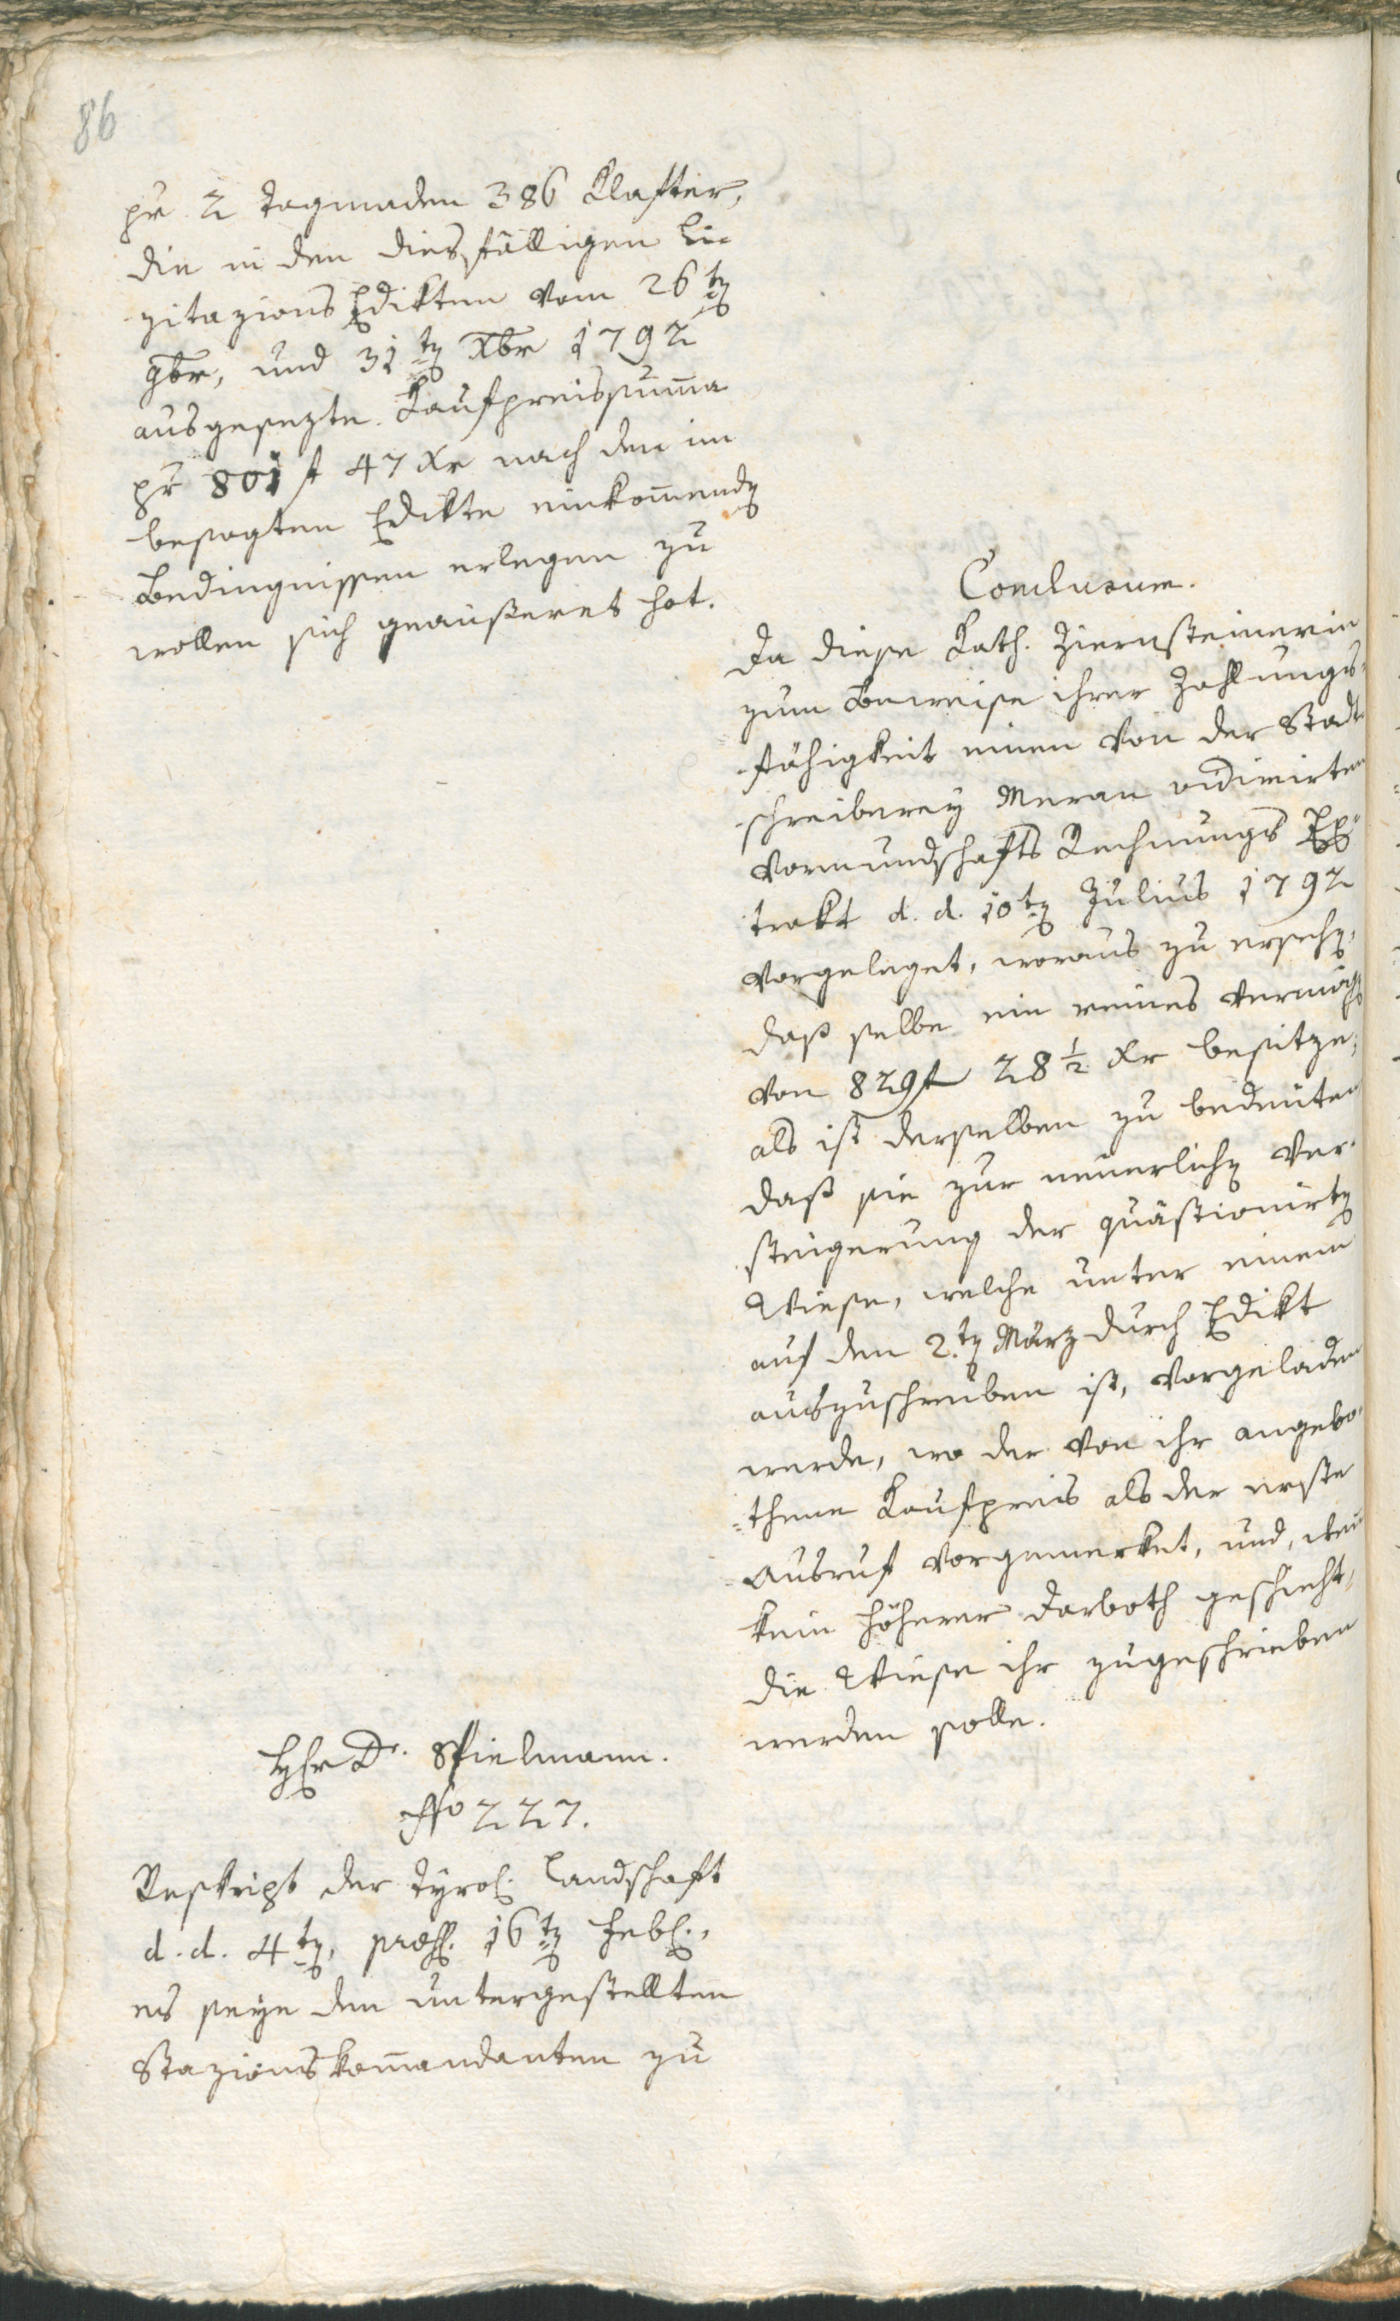 86
pr 2 Tagmaden 386 Klafter,
die in den diesfälligen Li-
zitazions Edikten vom 26ten
9ber, und 31ten Xber 1792
ausgesezte Kaufpreissuma
pr 801 f 47 xr nach den im
besagten Edikte einkomenden
Bedingnissen erlegen zu
wollen sich geäußeret hat.
Conclusum.
Da diese Kath. Ziernsteinerin
zum Beweise ihrer Zahlungs-
fähigkeit einen von der Stadt
schreiberey Meran vidimirten
Vormundschafts Rechnungs Ex-
trakt d. d. 10ten Julius 1792
vorgeleget, woraus zu ersehen,
daß selbe ein reines Vermögen
von 829 f 28 1/2 xr besitze,
als ist derselben zu bedeuten
daß sie zur neuerlichen Ver-
steigerung der quästionirten
Wiese, welche unter einem
auf den 2.ten März durch Edikt
auszuschreiben ist, vorgeladen
werde, wo der von ihr angebo-
thene Kaufpreis als der erste
Ausruf vorgemerket, und, wen
kein höherer Darboth geschieht,
die Wiese ihr zugeschrieben
werden solle.
Hr Dr. Spielmann.
No 227.
Reskript der Tyrol. Landschaft
d. d. 4ten, præs. 16ten Feb.,
es seye den untergestellten
Stazionskomandanten zu